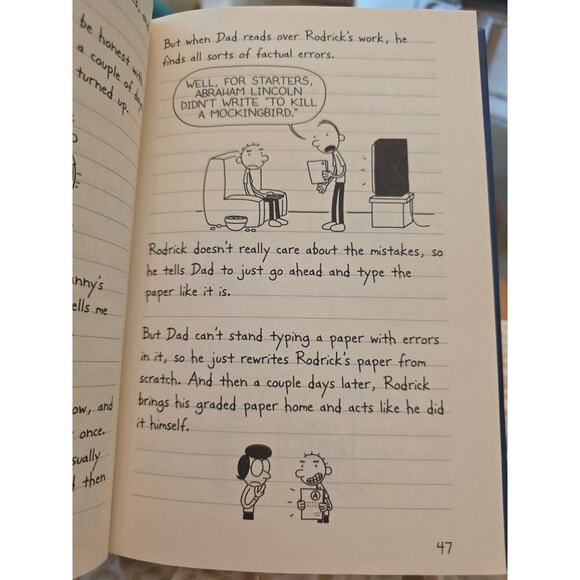 be honest with
a couple of days
turned up.
nny's
ells me
ow, and
once.
sually
then
But when Dad reads over Rodrick's work, he
finds all sorts of factual errors.
WELL, FOR STARTERS,
ABRAHAM LINCOLN
DIDN'T WRITE "TO KILL
A MOCKINGBIRD."
Rodrick doesn't really care about the mistakes, so
he tells Dad to just go ahead and type the
paper like it is.
But Dad can't stand typing a paper with errors
in it, so he just rewrites Rodrick's paper from
scratch. And then a couple days later, Rodrick
brings his graded paper home and acts like he did
it himself.
A
47